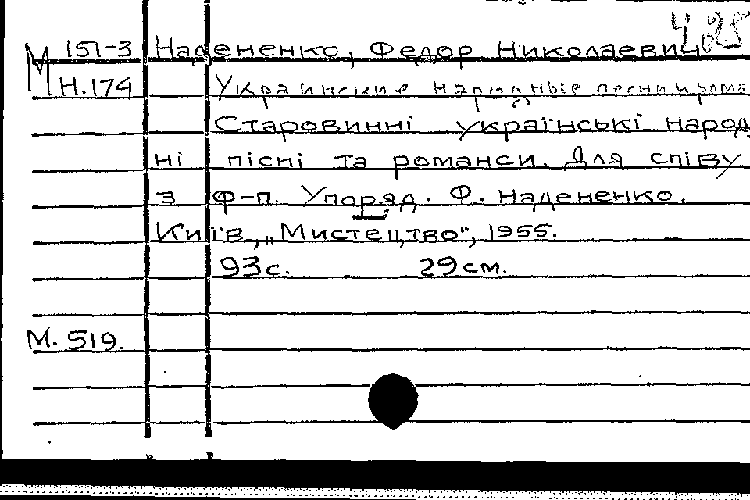 4.25
М 151-3 Надененко, Федор Николаевич
Н.174 Украинские народные песни и рома
Старовинні українські народ
ні пісні та романси. Для співу
з ф-п. Упоряд. Ф. Надененко.
Київ, „Мистецтво", 1955.
93с. 29см.
М. 519.